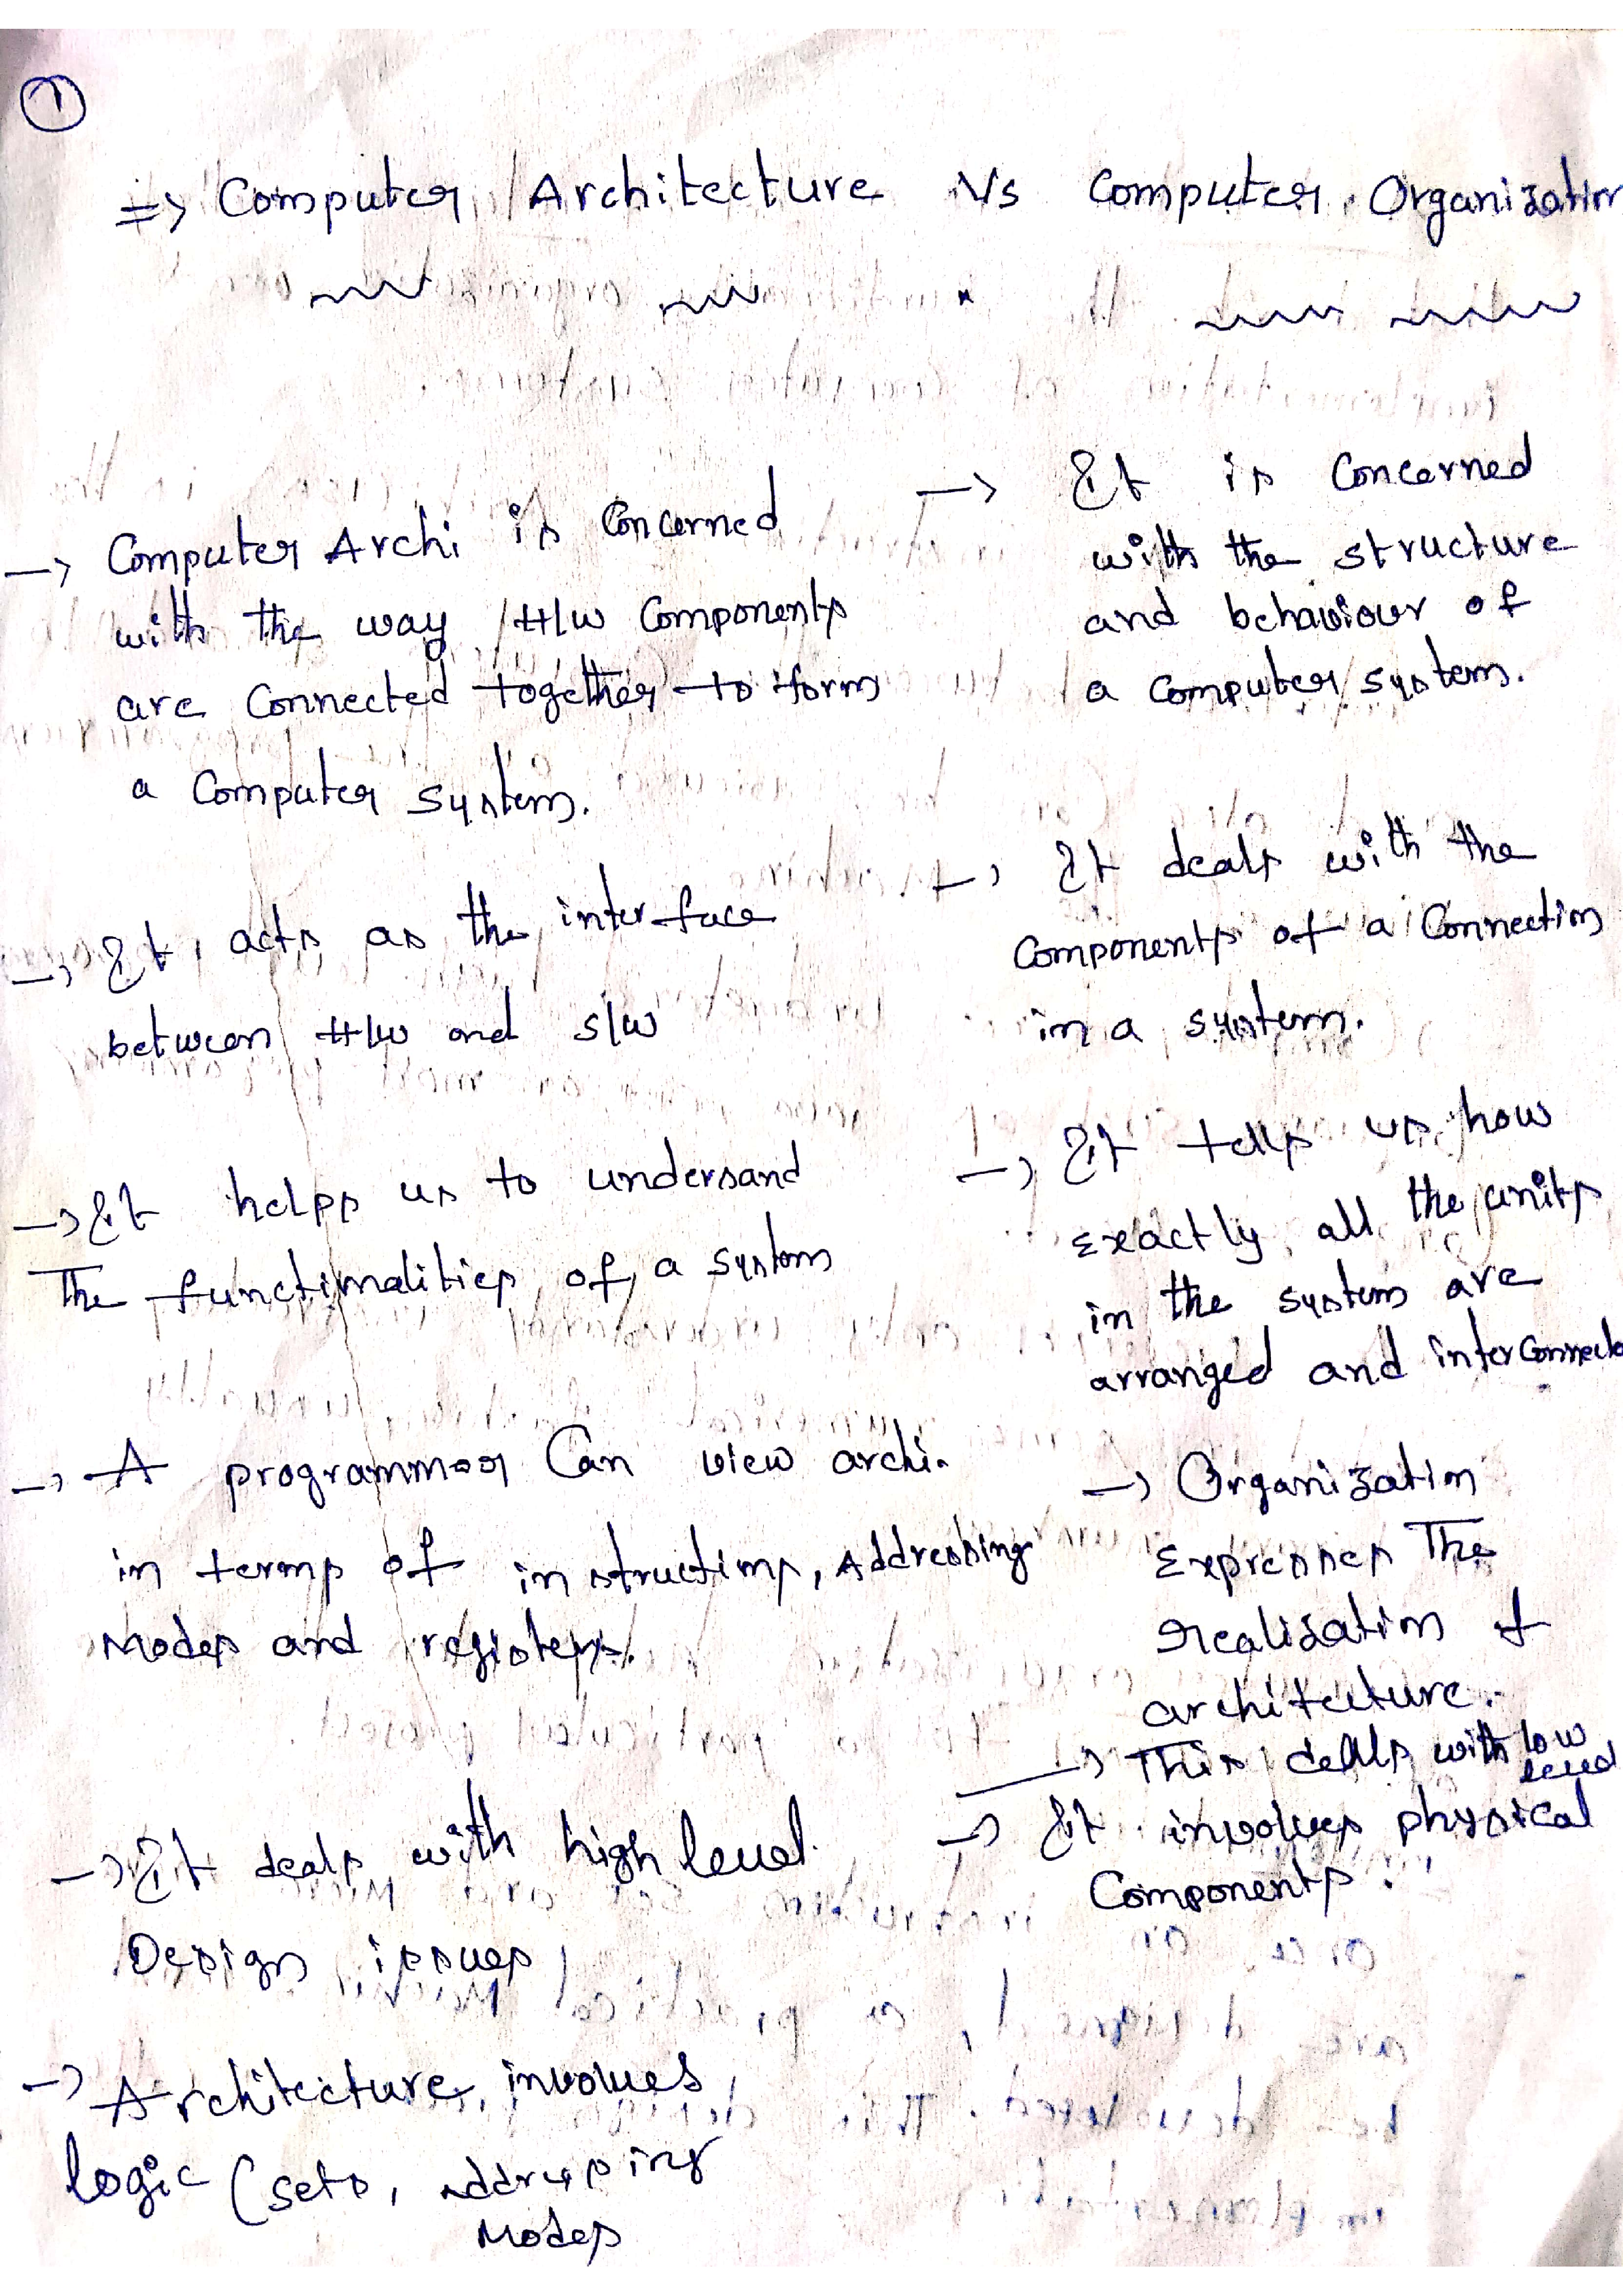 1
=> Computer Architecture Vs Computer Organization
-> Computer Archi is Concerned
with the way H/w Components
are Connected together to form
a Computer system.
-> It acts as the interface
between H/w and s/w
-> It helps us to undersand
The functionalities of a system
-> A programmer Can view archi.
in terms of instructions, Addressing
Modes and registers.
-> It deals with high level
Design issues
-> Architecture involves
logic (sets, addressing
Modes
-> It is Concerned
with the structure
and behaviour of
a computer system.
-> It deals with the
Components of a Connection
in a system.
-> It tells us how
Exactly all the units
in the system are
arranged and interconnected
-> Organization
Expresses The
realization of
architecture.
-> This deals with low
level
-> It involves physical
Components.